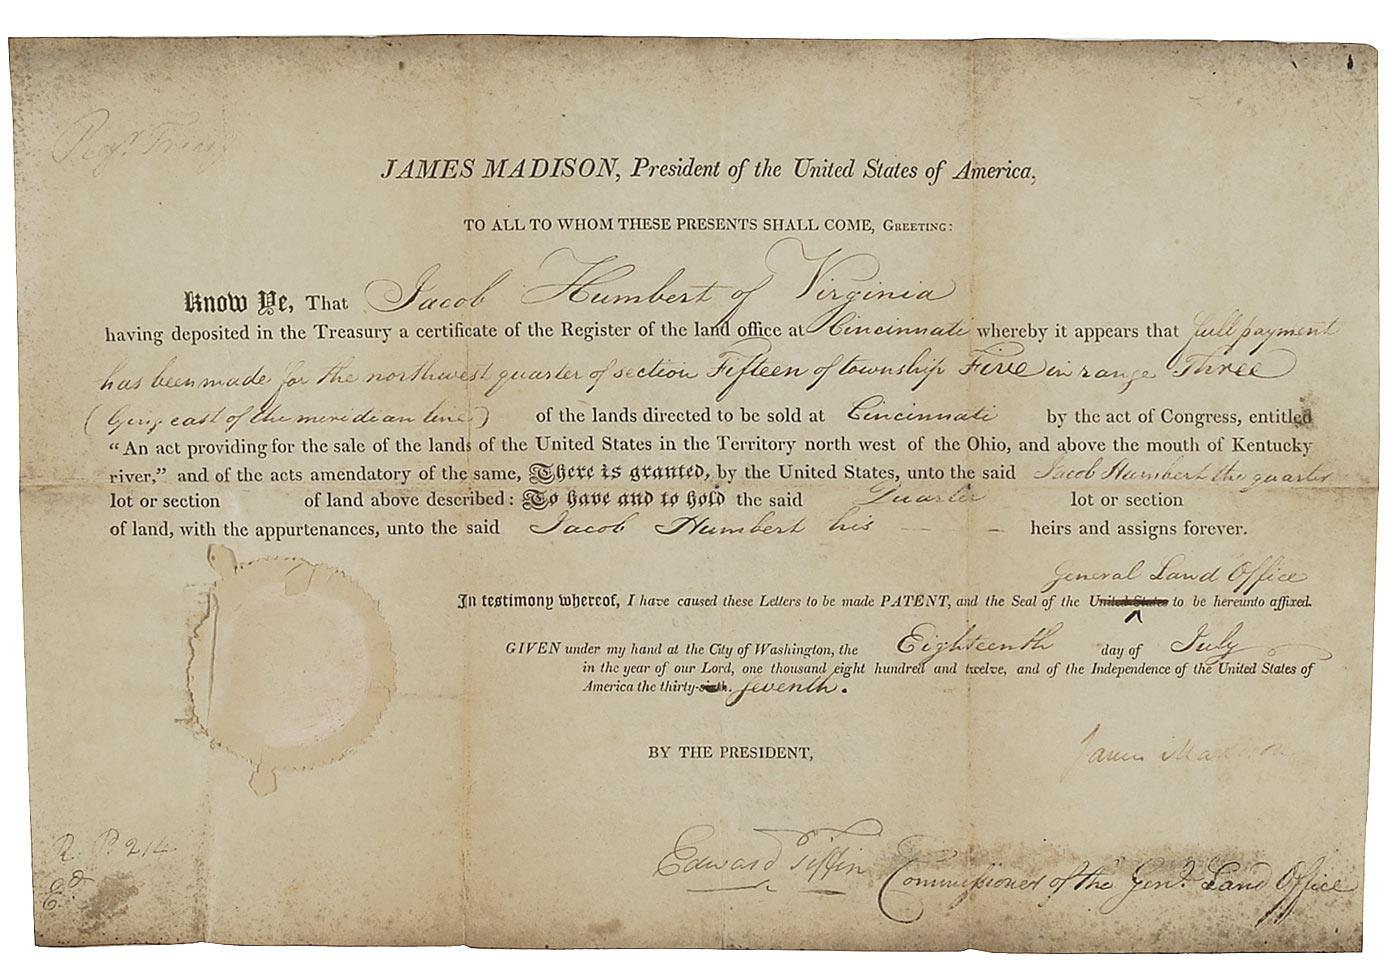 JAMES MADISON, President of the United States of America,
TO ALL TO WHOM THESE PRESENTS SHALL COME, GREETING:
Know Ye, That Jacob Humbert of Virginia
having deposited in the Treasury a certificate of the Register of the land office at Cincinnati whereby it appears that full payment
has been made for the northwest quarter of section Fifteen of township Five in range Three
(lying east of the meridian line) of the lands directed to be sold at Cincinnati by the act of Congress, entitled
“An act providing for the sale of the lands of the United States in the Territory north west of the Ohio, and above the mouth of Kentucky
river,” and of the acts amendatory of the same, There is granted, by the United States, unto the said Jacob Humbert the quarter
lot or section of land above described: To have and to hold the said Quarter lot or section
of land, with the appurtenances, unto the said Jacob Humbert his — — heirs and assigns forever.
General Land Office
In testimony whereof, I have caused these Letters to be made PATENT, and the Seal of the United States to be hereunto affixed.
GIVEN under my hand at the City of Washington, the Eighteenth day of July
in the year of our Lord, one thousand eight hundred and twelve, and of the Independence of the United States of
America the thirty-sixth. seventh.
BY THE PRESIDENT,
James Madison
Edward Tiffin Commissioner of the Genl. Land Office